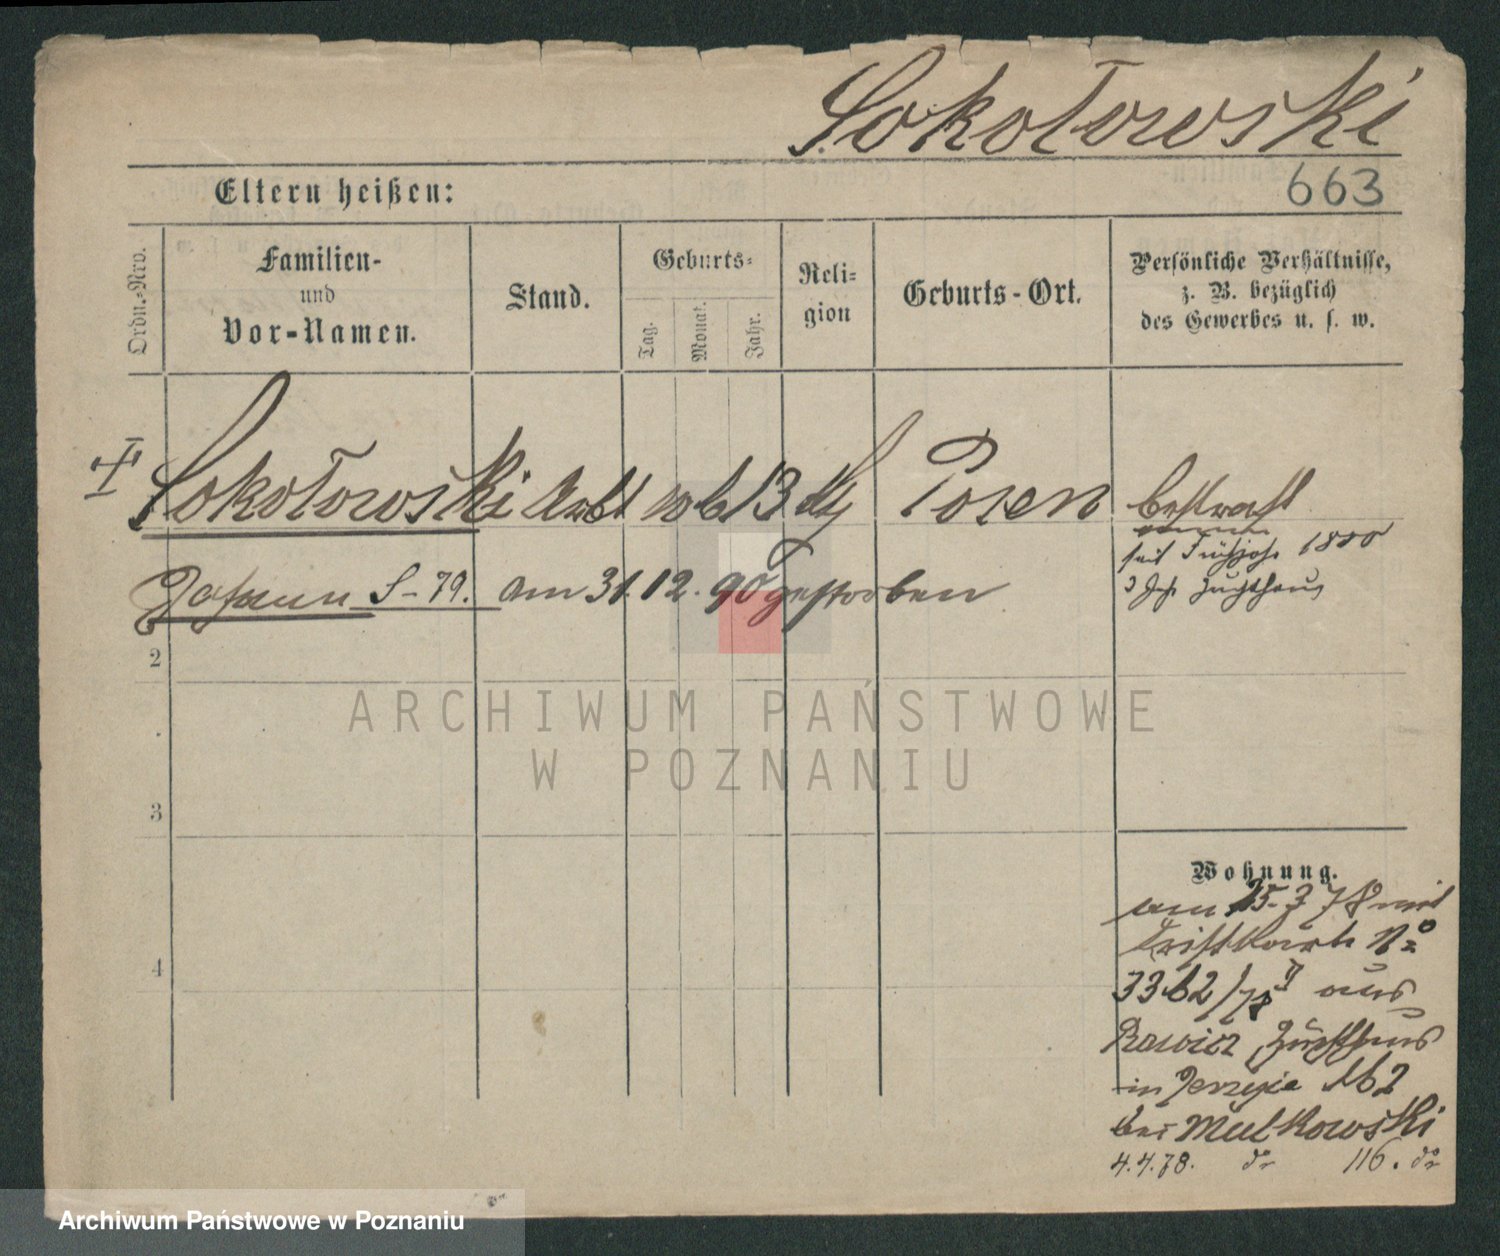 Sokołowski
Eltern heißen:
663
Ordn.-Nro.
Familien-
und
Vor-Namen.
Stand.
Geburts-
Tag.
Monat.
Jahr.
Reli-
gion
Geburts-Ort.
Persönliche Verhältnisse,
z. B. bezüglich
des Gewerbes u. s. w.
Sokołowski Arbt 6 13 Posen bestraft
seit Frühjahr 1880
Zuchthaus
Johann S-79. am 31.12.90 gestorben
2
3
4
Wohnung.
am 15-3 78 mit
No
3362/78 II aus
Rawicz, Zuchthaus
in Jerzyce 162
bei Mulkowski
4.4.78. do 116. do
ARCHIWUM PAŃSTWOWE
W POZNANIU
Archiwum Państwowe w Poznaniu